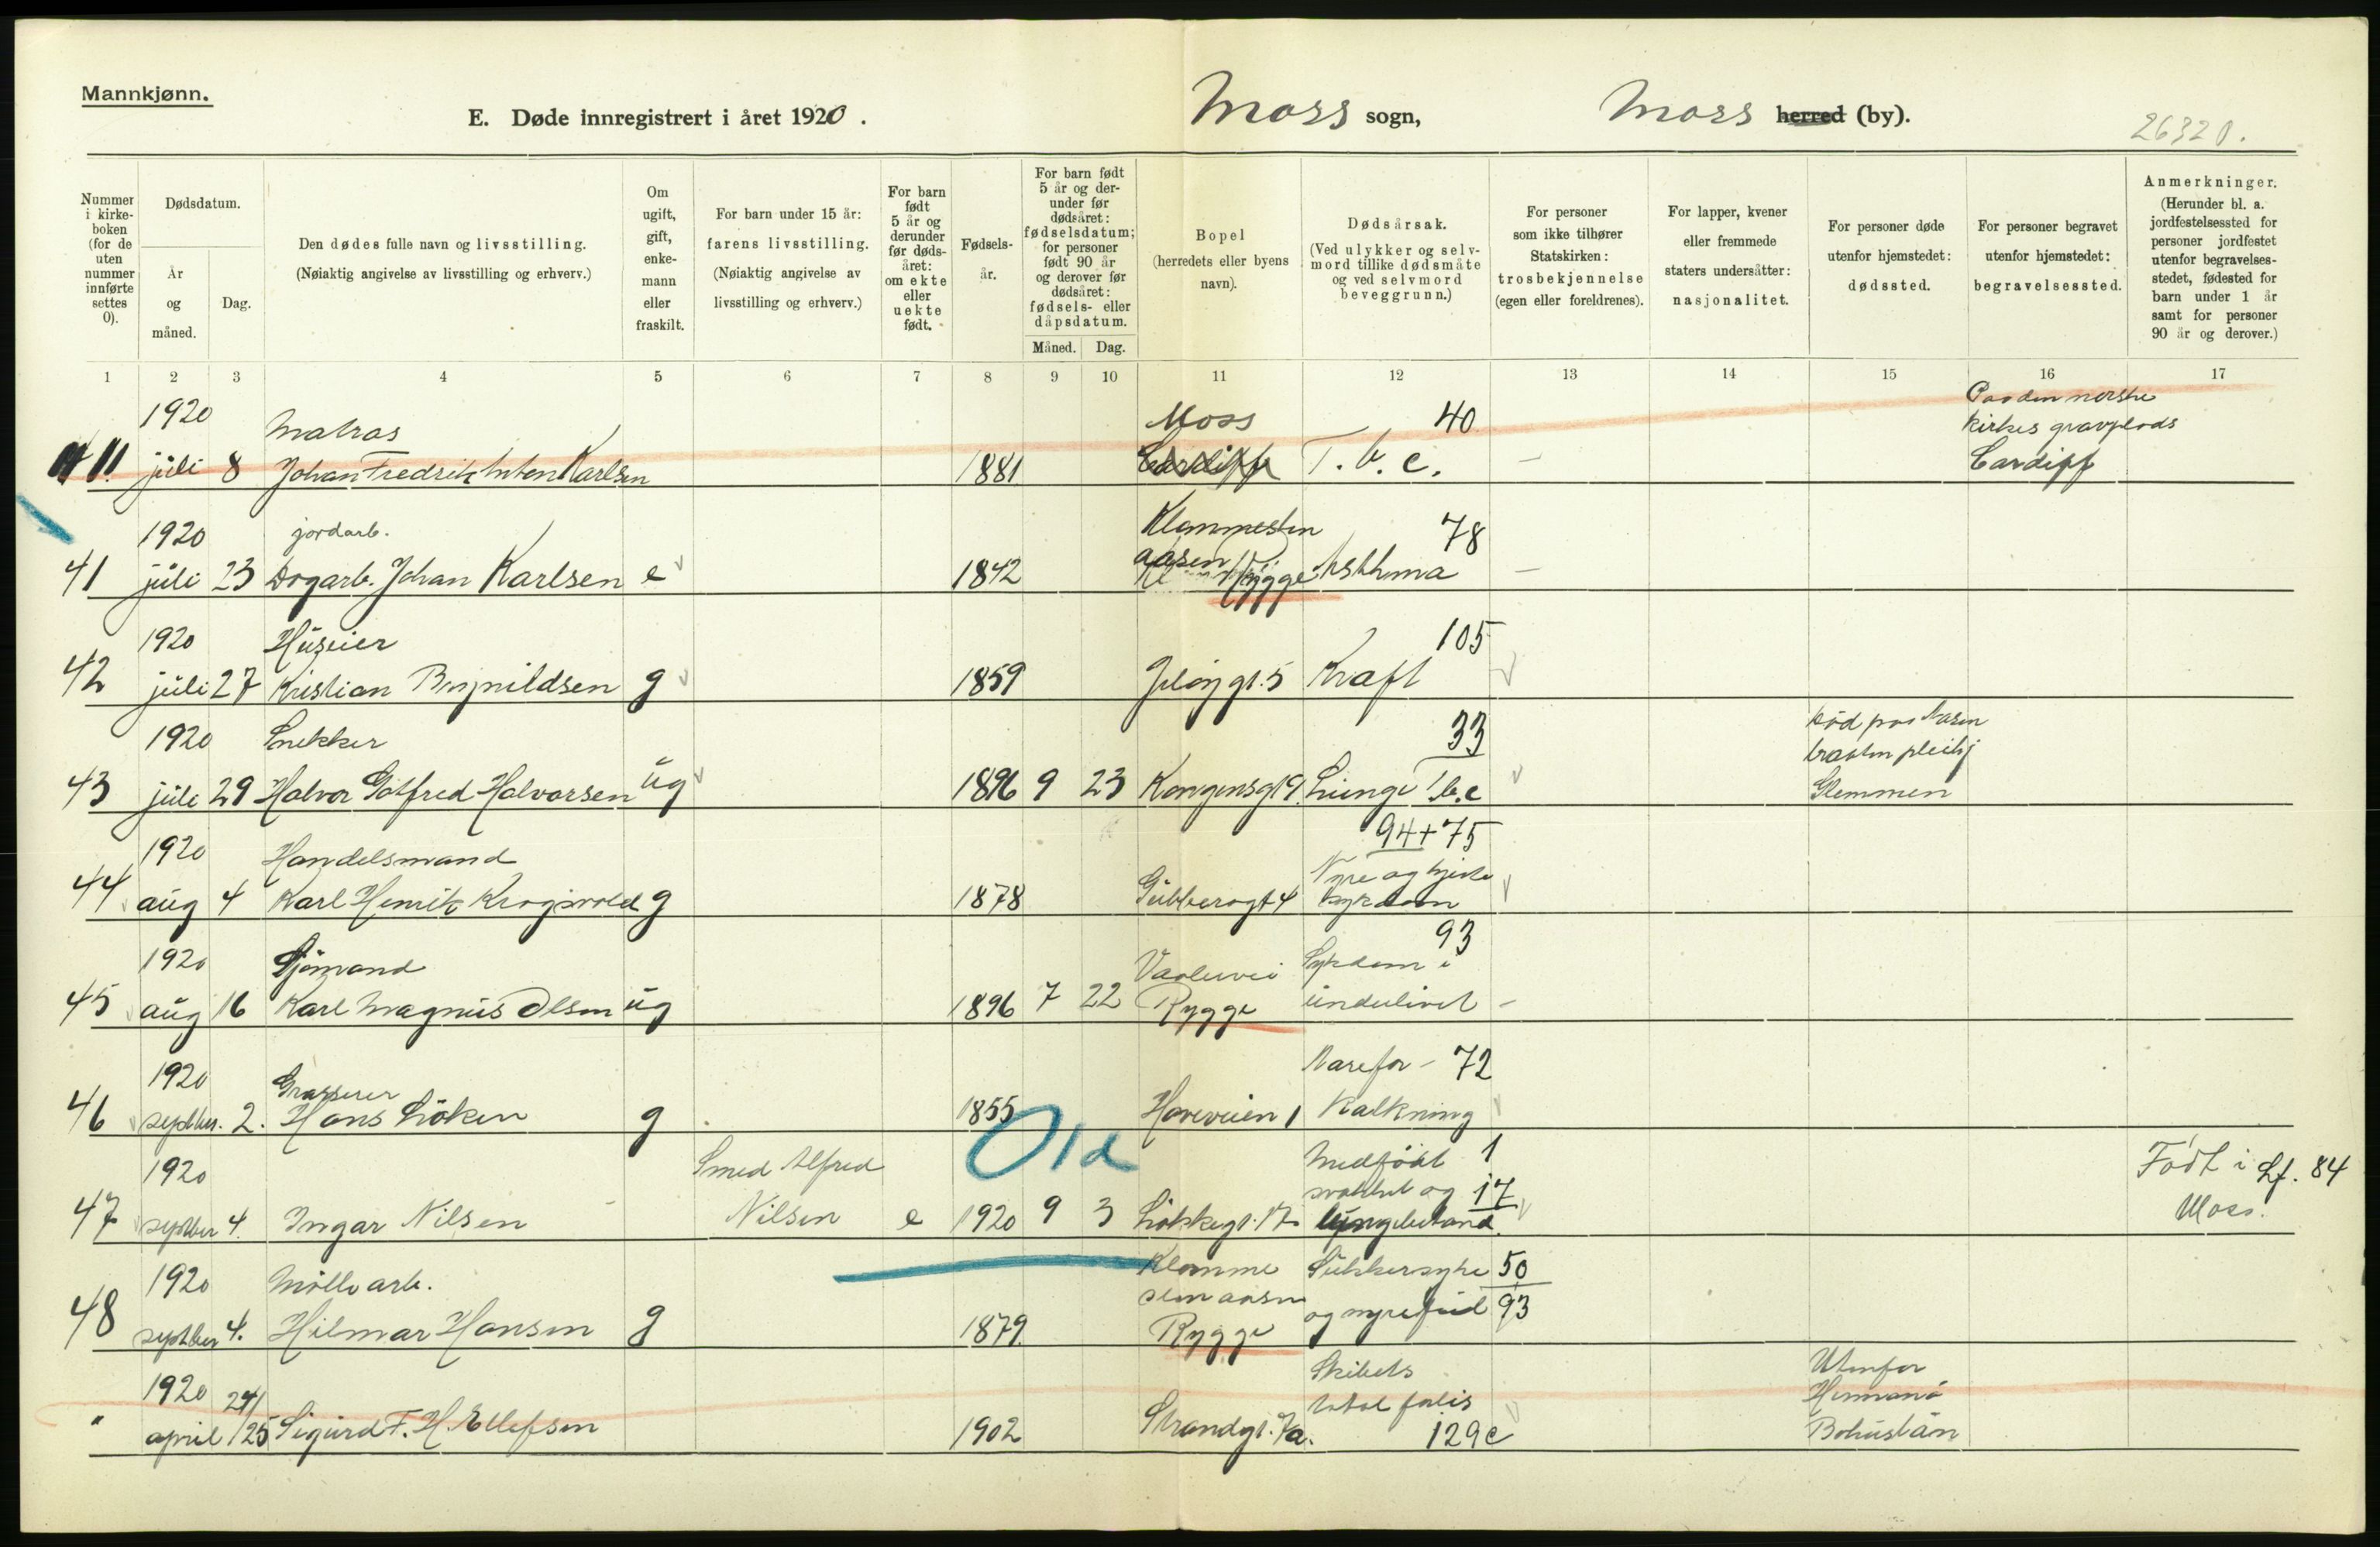 Mannkjønn.
E. Døde innregistrert i året 1920.
Moss sogn,
Moss herred (by).
26320.
Nummer i kirke-boken (for de uten nummer innførte settes 0).
Dødsdatum.
År og måned.
Dag.
Den dødes fulle navn og livsstilling.
(Nøiaktig angivelse av livsstilling og erhverv.)
Om ugift, gift, enke-mann eller fraskilt.
For barn under 15 år:
farens livsstilling.
(Nøiaktig angivelse av livsstilling og erhverv.)
For barn født 5 år og derunder før døds-året: om ekte eller uekte født.
Fødsels-år.
For barn født 5 år og der-under før dødsåret: fødselsdatum; for personer født 90 år og derover før dødsåret: fødsels- eller dåpsdatum.
Måned.
Dag.
Bopel
(herredets eller byens navn).
Dødsårsak.
(Ved ulykker og selv-mord tillike dødsmåte og ved selvmord beveggrunn.)
For personer som ikke tilhører Statskirken: trosbekjennelse (egen eller foreldrenes).
For lapper, kvener eller fremmede staters undersåtter: nasjonalitet.
For personer døde utenfor hjemstedet: dødssted.
For personer begravet utenfor hjemstedet: begravelsessted.
Anmerkninger.
(Herunder bl. a. jordfestelsessted for personer jordfestet utenfor begravelses-stedet, fødested for barn under 1 år samt for personer 90 år og derover.)
1 2 3 4 5 6 7 8 9 10 11 12 13 14 15 16 17
1920 Matros Moss 40 Paa den norske
kirkes gravplads
11 juli 8 Johan Fredrik Anton Karlsen 1881 Cardiff T.b.c. — Cardiff
1920 jordarb. Klommesten 78
aasen
41 juli 23 Dagarb. Johan Karlsen e 1842 Rygge Asthma —
1920 Huseier 105
42 juli 27 Kristian Brynildsen g 1859 Jeløygt. 5 Kræft
1920 Snekker 33
43 juli 29 Halvor Gotfred Halvorsen ug 1896 9 23 Kongensgt 9 Lunge T.b.c Glemmen
94+75
1920 Handelsmand Nyre og hjerte
44 aug 4 Karl Henrik Krogsvold g 1878 Gubberogt 4 sykdom
93
1920 Sjømand Vaalervei Sykdom i
45 aug 16 Karl Magnus Olsen ug 1896 7 22 Rygge underlivet —
1920 Grosserer Aarefor- 72
46 septber. 2. Hans Løken g 1855 Høieveien 1 kalkning
Old
1920 Smed Alfred Medfødt 1 Født i Lf. 84
svakhet og 17
47 septber 4. Ingar Nilsen - Nilsen e 1920 9 3 Løkkegt. 17 Moss.
1920 Mølle arb. Klomme Sukkersyke 50
sten aasen og nyre 93
48 septber 4. Hilmar Hansen g 1879 Rygge
Skibets Utenfor
1920 24/ total forlis Hermanö
" april /25 Sigurd F. H. Ellefsen 1902 Strandgt. 7a. 129c Bohuslän